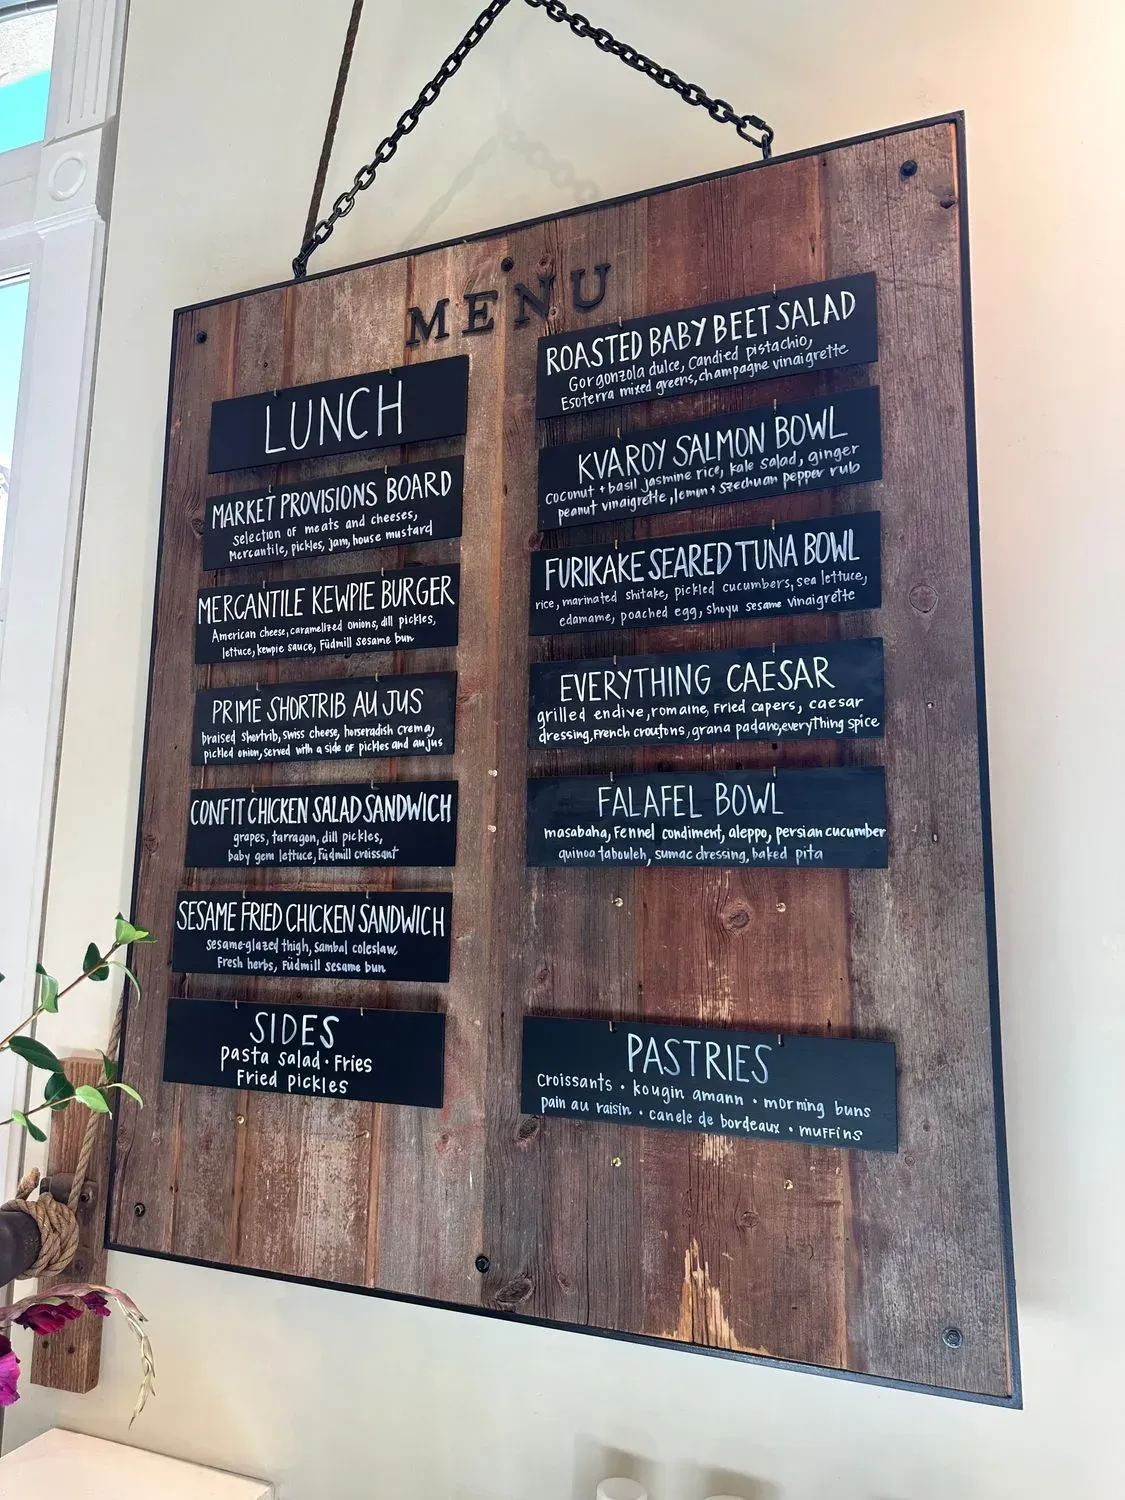 MENU
LUNCH
MARKET PROVISIONS BOARD
selection of meats and cheeses,
Mercantile, pickles, jam, house mustard
MERCANTILE KEWPIE BURGER
American cheese, caramelized onions, dill pickles,
lettuce, kewpie sauce, Füdmill sesame bun
PRIME SHORTRIB AU JUS
braised shortrib, swiss cheese, horseradish crema,
pickled onion, served with a side of pickles and au jus
CONFIT CHICKEN SALAD SANDWICH
grapes, tarragon, dill pickles,
baby gem lettuce, Füdmill croissant
SESAME FRIED CHICKEN SANDWICH
sesame-glazed thigh, sambal coleslaw,
Fresh herbs, Füdmill sesame bun
SIDES
pasta salad · Fries
Fried pickles
ROASTED BABY BEET SALAD
Gorgonzola dulce, Candied pistachio,
Esoterra mixed greens, champagne vinaigrette
KVAROY SALMON BOWL
coconut + basil jasmine rice, kale salad, ginger
peanut vinaigrette, lemon + szechuan pepper rub
FURIKAKE SEARED TUNA BOWL
rice, marinated shitake, pickled cucumbers, sea lettuce,
edamame, poached egg, shoyu sesame vinaigrette
EVERYTHING CAESAR
grilled endive, romaine, Fried capers, caesar
dressing, French croutons, grana padano, everything spice
FALAFEL BOWL
masabaha, Fennel condiment, aleppo, persian cucumber
quinoa tabouleh, sumac dressing, baked pita
PASTRIES
Croissants · kougin amann · morning buns
pain au raisin · canele de bordeaux · muffins